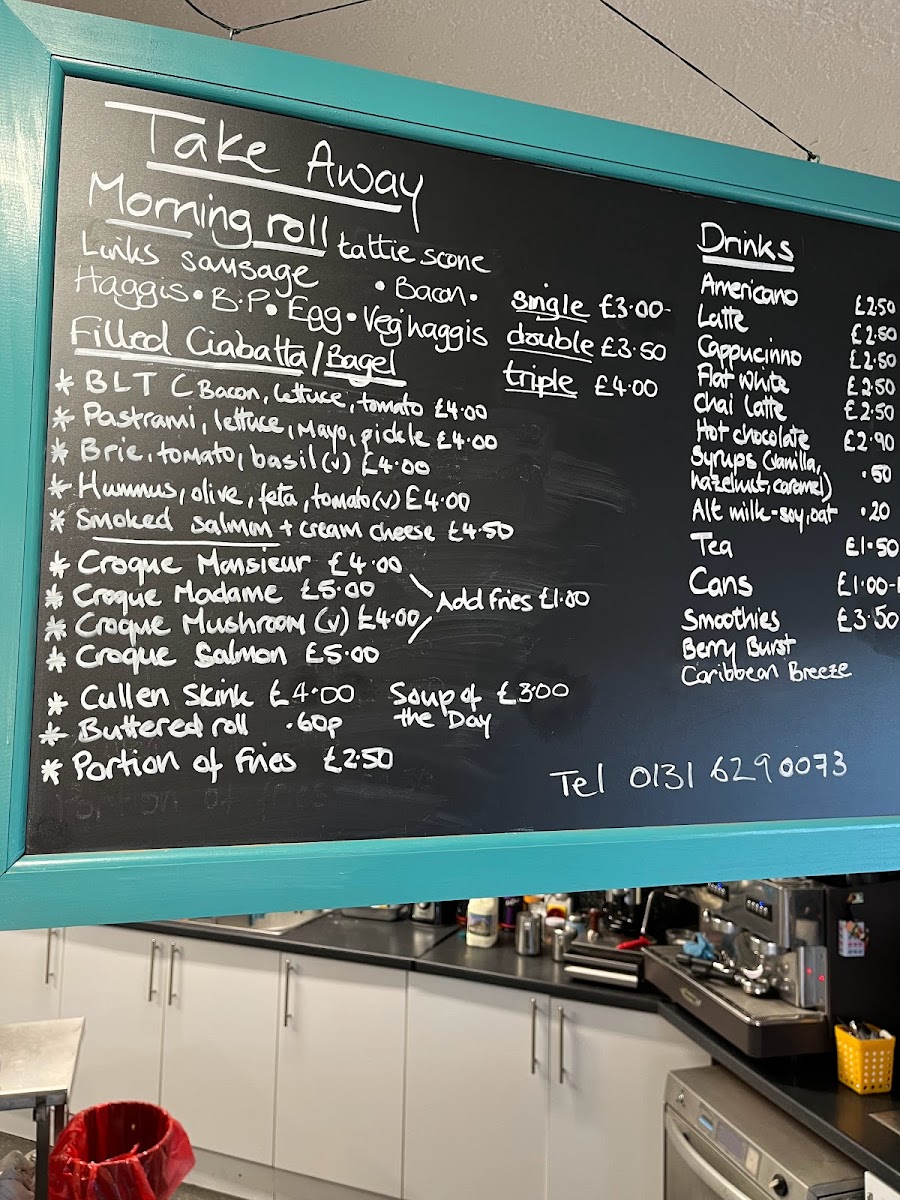 Take Away
Morning roll
tattie scone
Links sausage • Bacon •
Haggis • B.P • Egg • Veg haggis
single £3.00-
double £3.50
triple £4.00
Filled Ciabatta/Bagel
* BLT C Bacon, lettuce, tomato £4.00
* Pastrami, lettuce, Mayo, pickle £4.00
* Brie, tomato, basil (v) £4.00
* Hummus, olive, feta, tomato (v) £4.00
* Smoked salmon + cream cheese £4.50
* Croque Monsieur £4.00
* Croque Madame £5.00
* Croque Mushroom (v) £4.00
* Croque Salmon £5.00
Add fries £1.80
* Cullen Skink £4.00
Soup of the Day £3.00
* Buttered roll .60p
* Portion of Fries £2.50
Portion of fries
Drinks
Americano £2.50
Latte £2.50
Cappucinno £2.50
Flat White £2.50
Chai latte £2.50
Hot chocolate £2.90
Syrups (vanilla, .50
hazelnut, caramel)
Alt milk - soy, oat .20
Tea £1.50
Cans £1.00-
Smoothies £3.50
Berry Burst
Caribbean Breeze
Tel 0131 629 0073